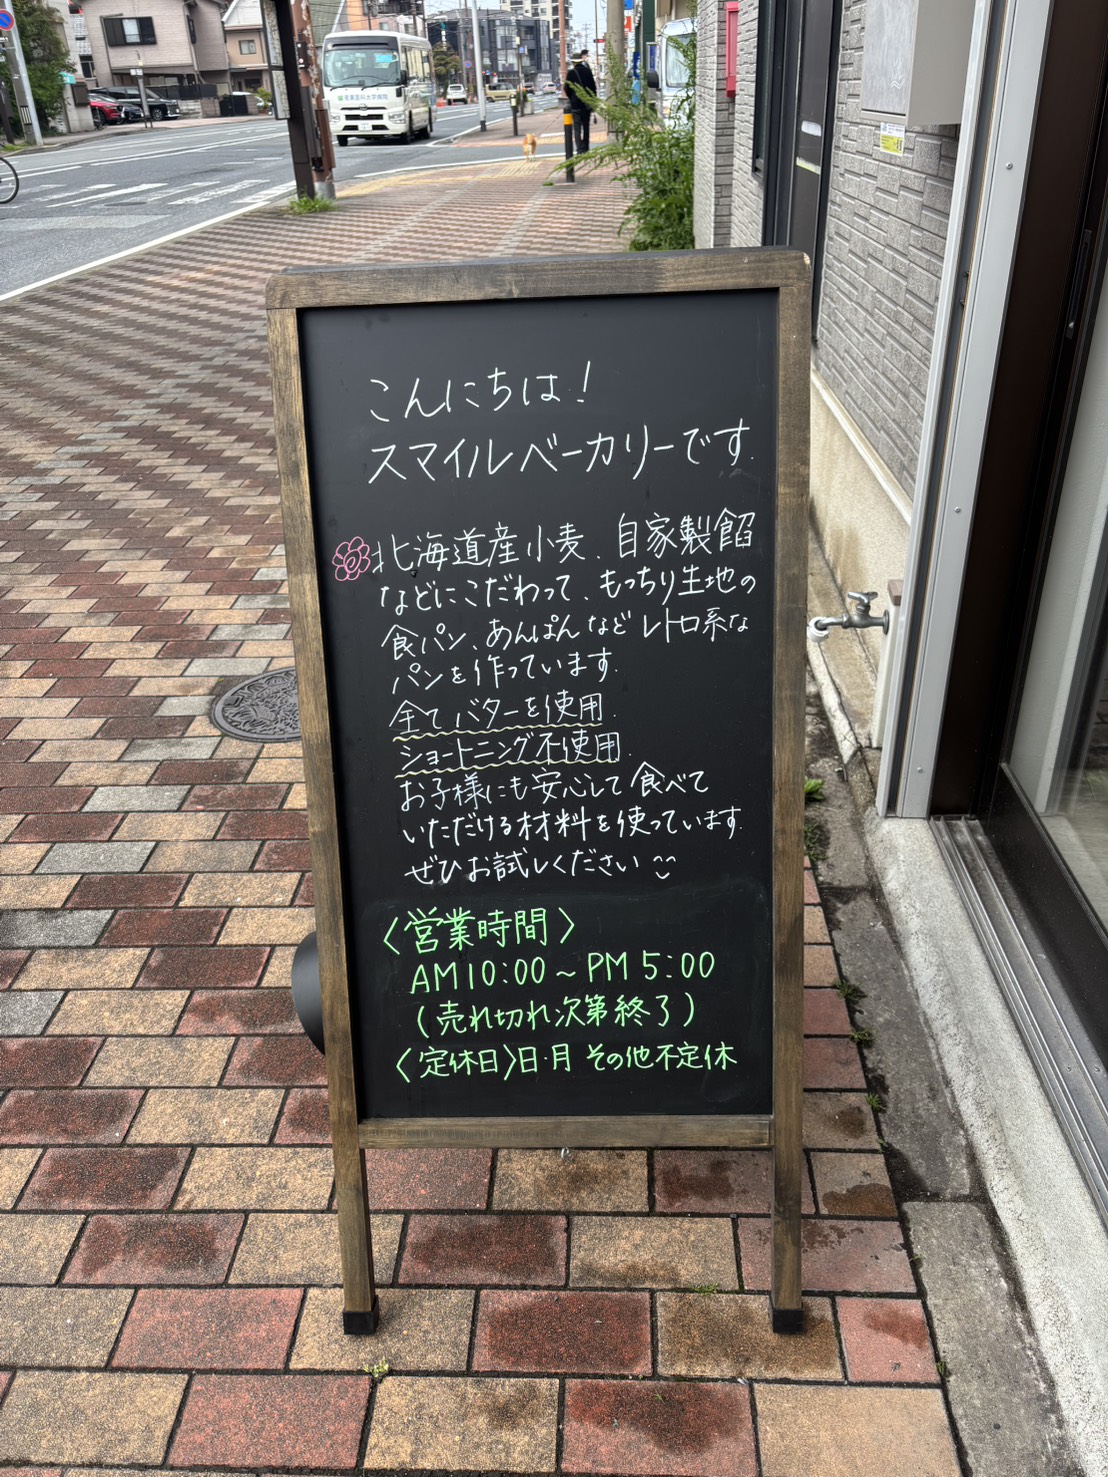 こんにちは!
スマイルベーカリーです.
北海道産小麦、自家製餡
などにこだわって、もっちり生地の
食パン、あんぱんなどレトロ系な
パンを作っています.
全てバターを使用.
ショートニング不使用.
お子様にも安心して食べて
いただける材料を使っています.
ぜひお試しください
〈営業時間〉
AM10:00~PM5:00
(売れ切れ次第終了)
〈定休日〉日・月 その他不定休